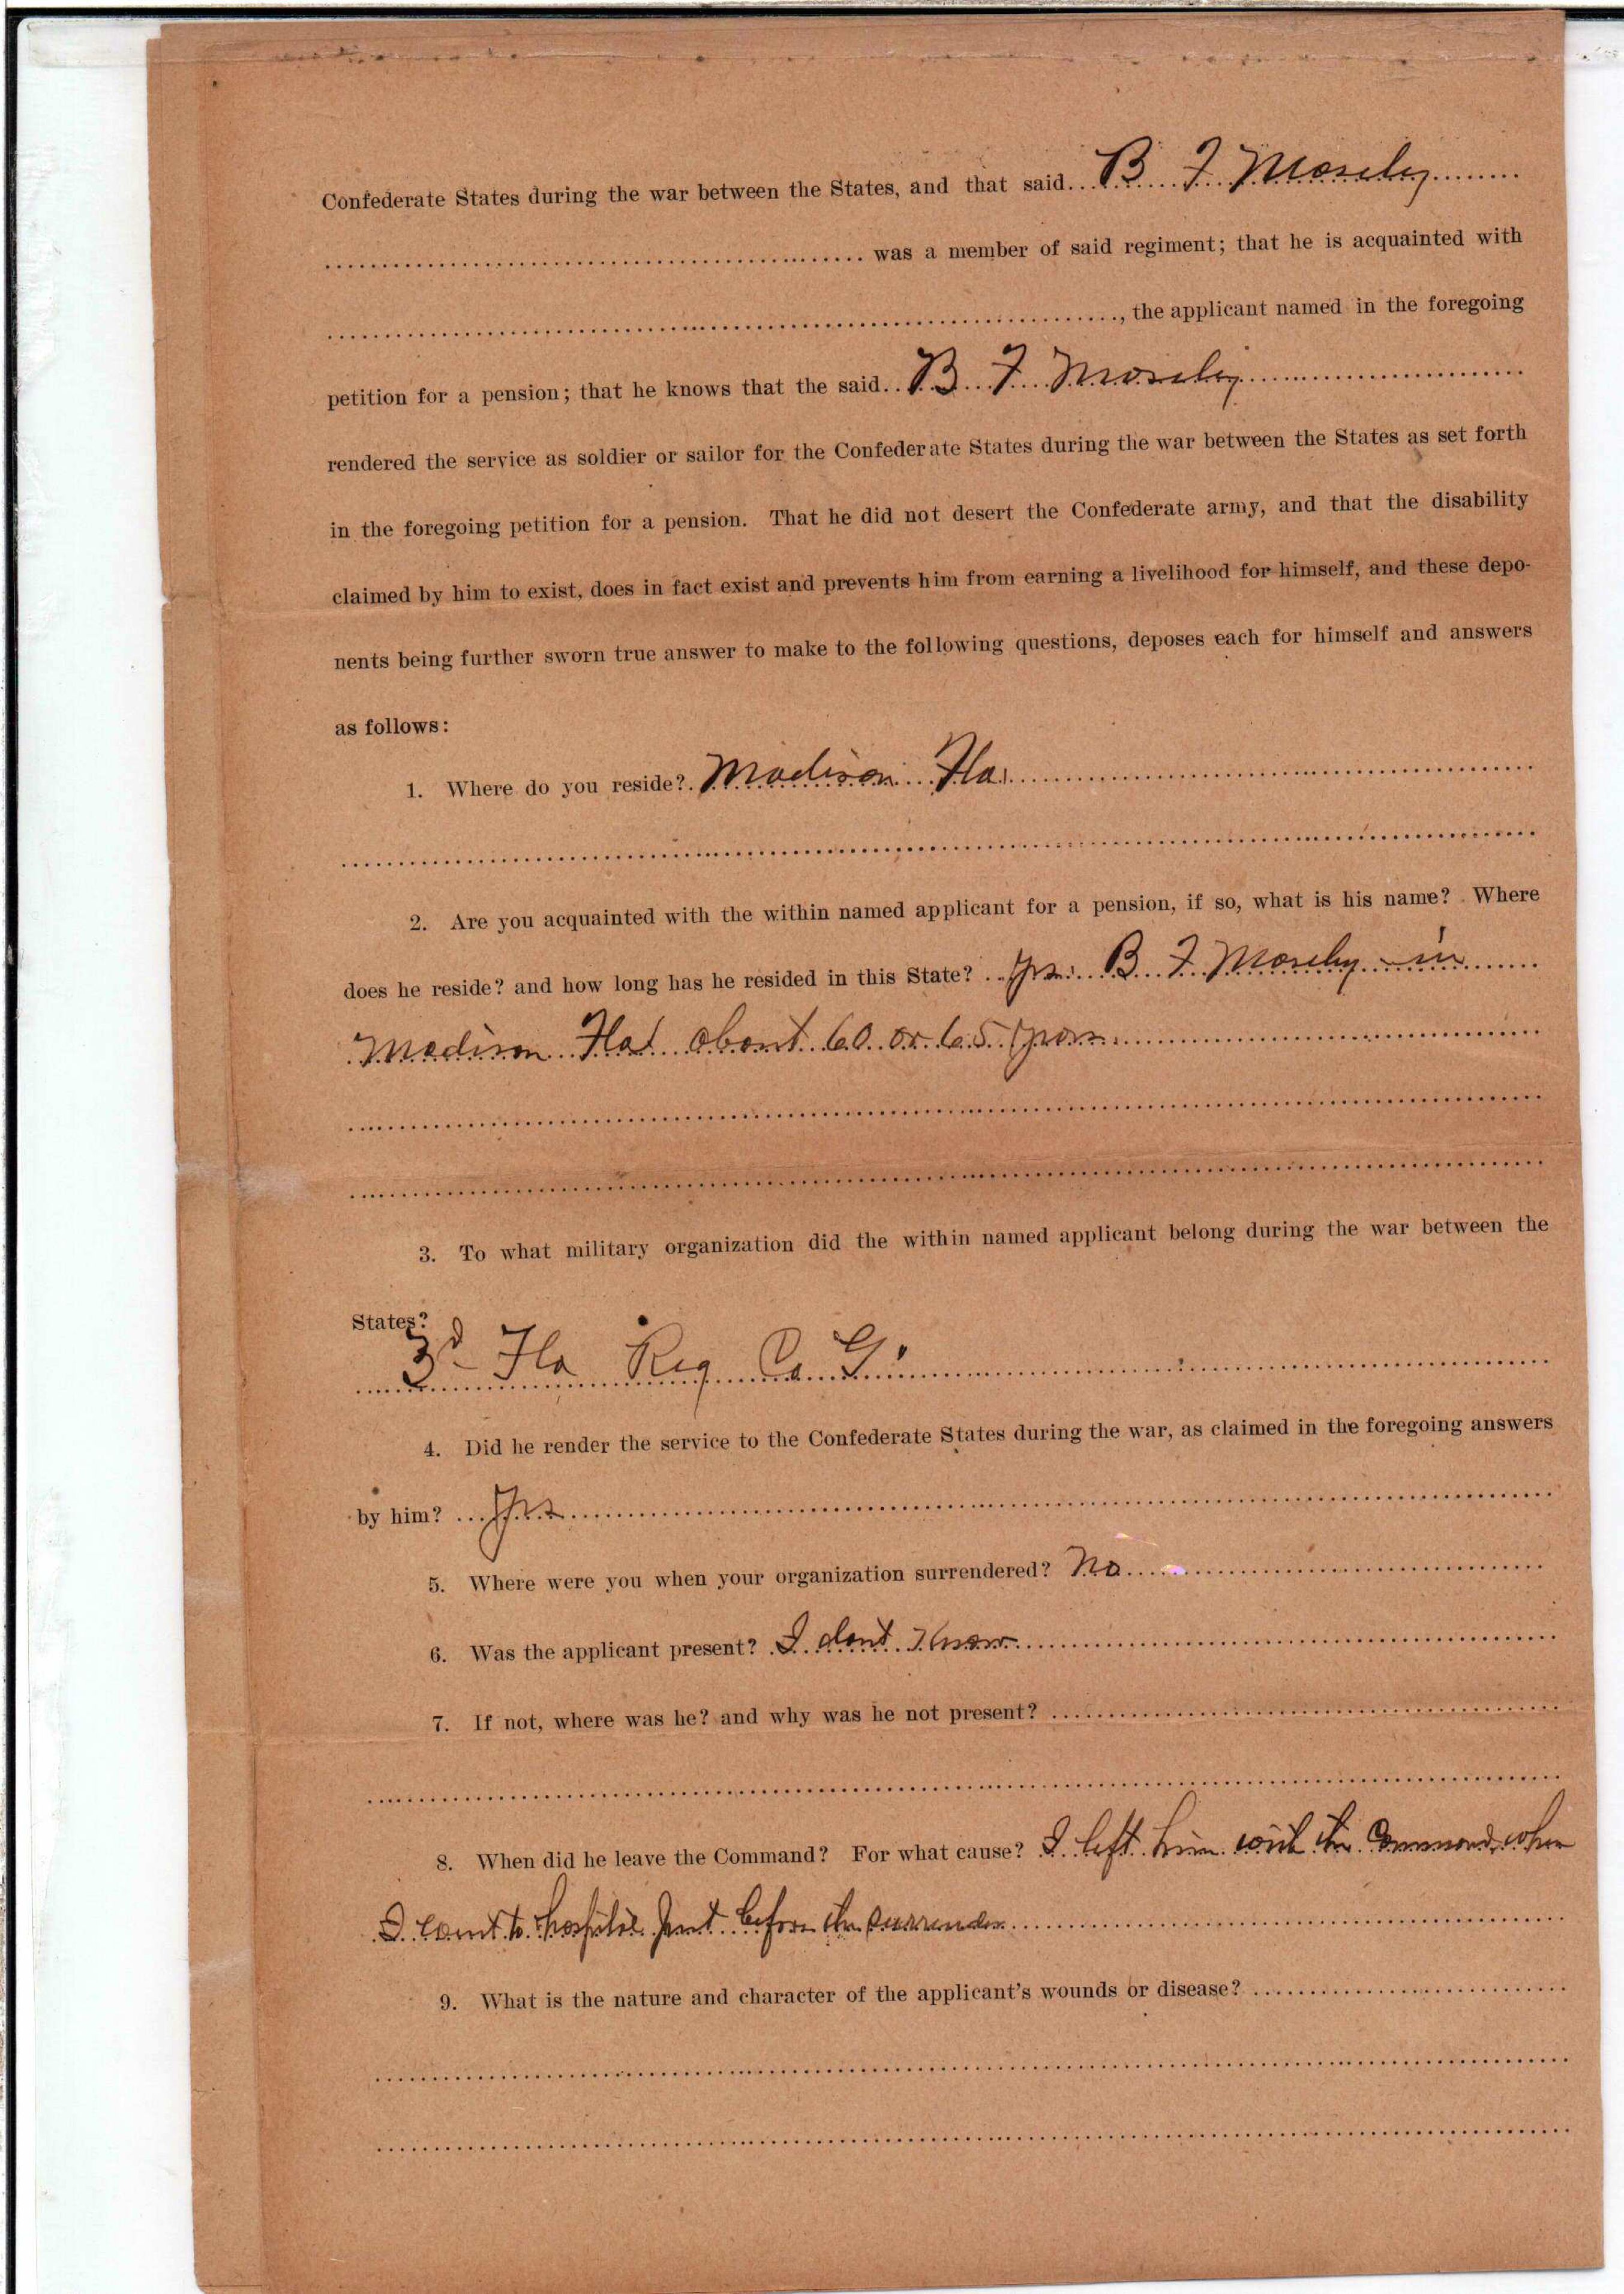 Confederate States during the war between the States, and that said B F Moseley
was a member of said regiment; that he is acquainted with
, the applicant named in the foregoing
petition for a pension; that he knows that the said B F Moseley
rendered the service as soldier or sailor for the Confederate States during the war between the States as set forth
in the foregoing petition for a pension. That he did not desert the Confederate army, and that the disability
claimed by him to exist, does in fact exist and prevents him from earning a livelihood for himself, and these depo-
nents being further sworn true answer to make to the following questions, deposes each for himself and answers
as follows:
1. Where do you reside? Madison Fla
2. Are you acquainted with the within named applicant for a pension, if so, what is his name? Where
does he reside? and how long has he resided in this State? Yes B F Moseley - in
Madison Fla about 60 or 65 years
3. To what military organization did the within named applicant belong during the war between the
States?
3d Fla Reg Co G
4. Did he render the service to the Confederate States during the war, as claimed in the foregoing answers
by him? Yes
5. Where were you when your organization surrendered? No
6. Was the applicant present? I dont Know
7. If not, where was he? and why was he not present?
8. When did he leave the Command? For what cause? I left him with the Command when
I went to hospital just before the surrender
9. What is the nature and character of the applicant's wounds or disease?